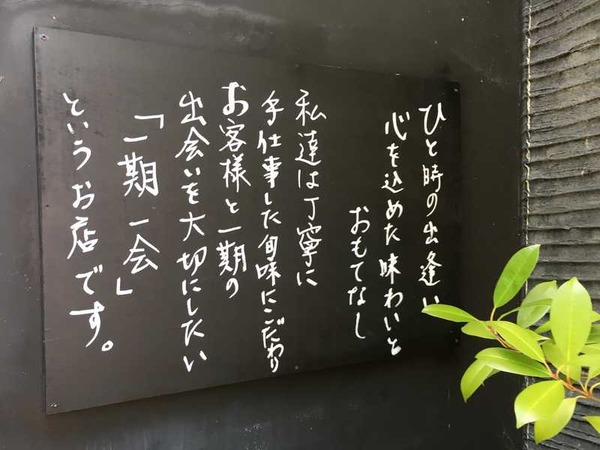 ひと時の出逢い
心を込めた味わいと
おもてなし
私達は丁寧に
手仕事した旬味にこだわり
お客様と一期の
出会いを大切にしたい
「一期一会」
というお店です。